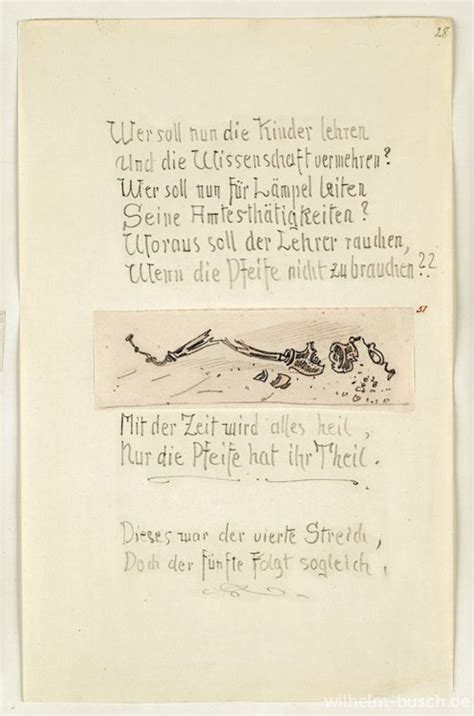 28
Wer soll nun die Kinder lehren
Und die Wissenschaft vermehren?
Wer soll nun für Lämpel leiten
Seine Amtesthätigkeiten?
Woraus soll der Lehrer rauchen,
Wenn die Pfeife nicht zu brauchen??
51
Mit der Zeit wird alles heil,
Nur die Pfeife hat ihr Theil.
Dieses war der vierte Streich,
Doch der fünfte folgt sogleich.
wilhelm-busch.de